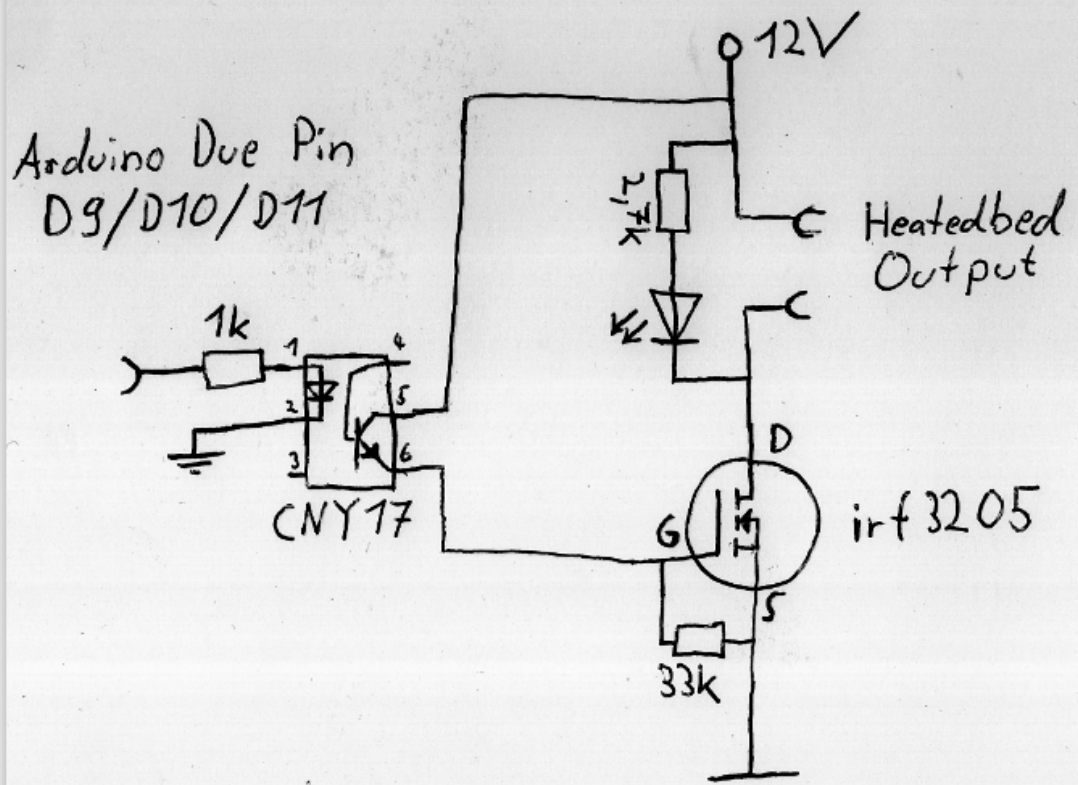 12V
Arduino Due Pin
D9/D10/D11
2,7k
Heatedbed
Output
1k
1
4
2
5
3
6
CNY17
D
G
irf3205
S
33k